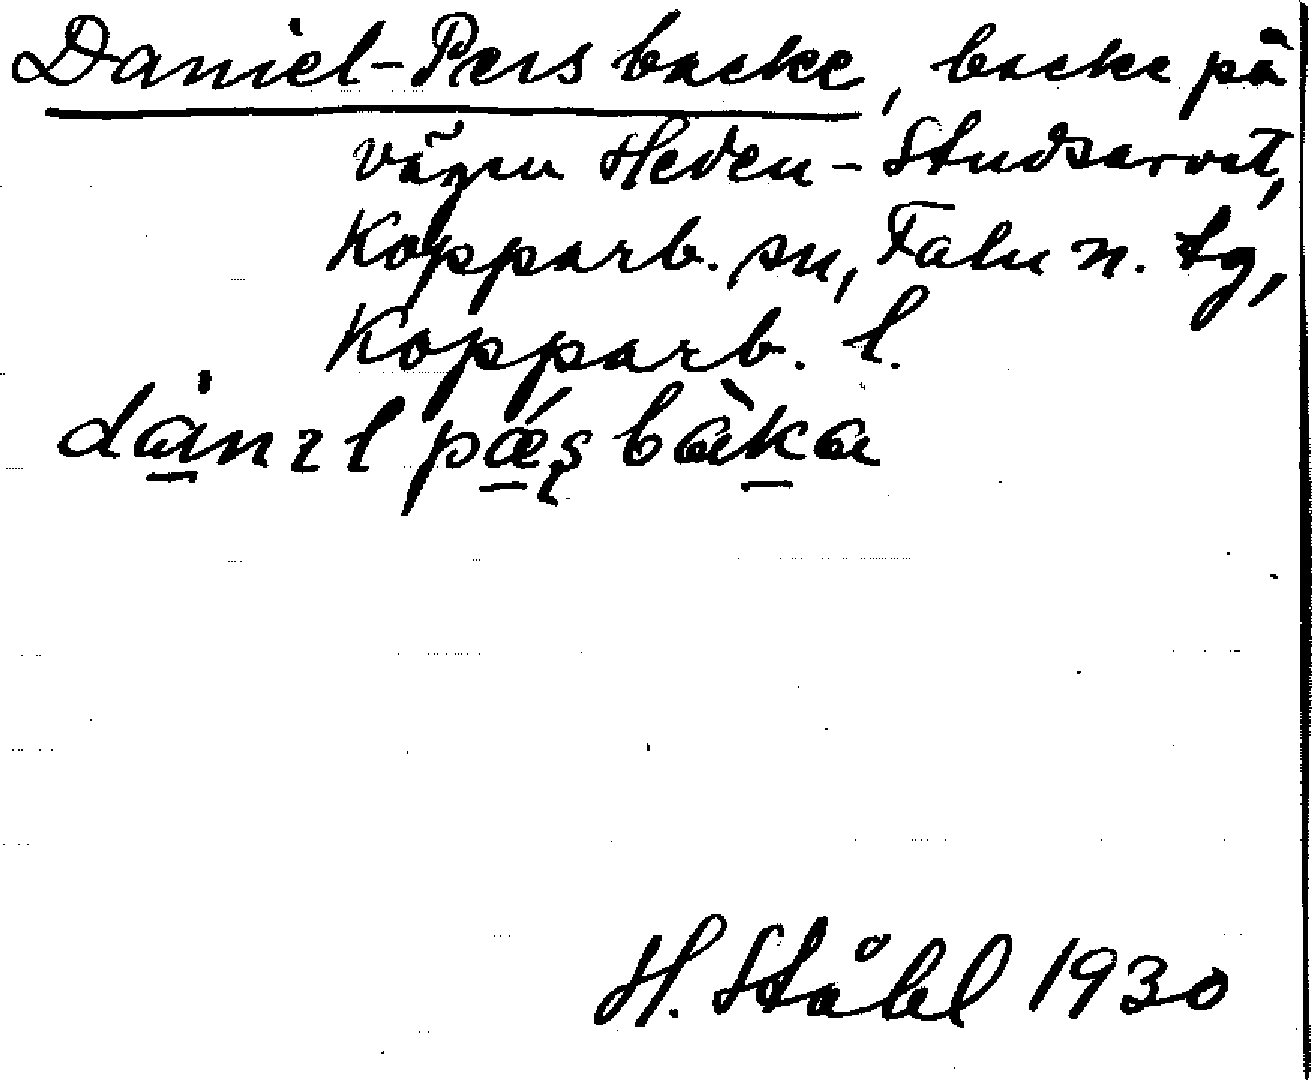 Daniel-Pers backe, backe på
vägen Heden - Studsarvet,
Kopparb. sn, Falu n. tg,
Kopparb. l.
H. Ståhl 1930